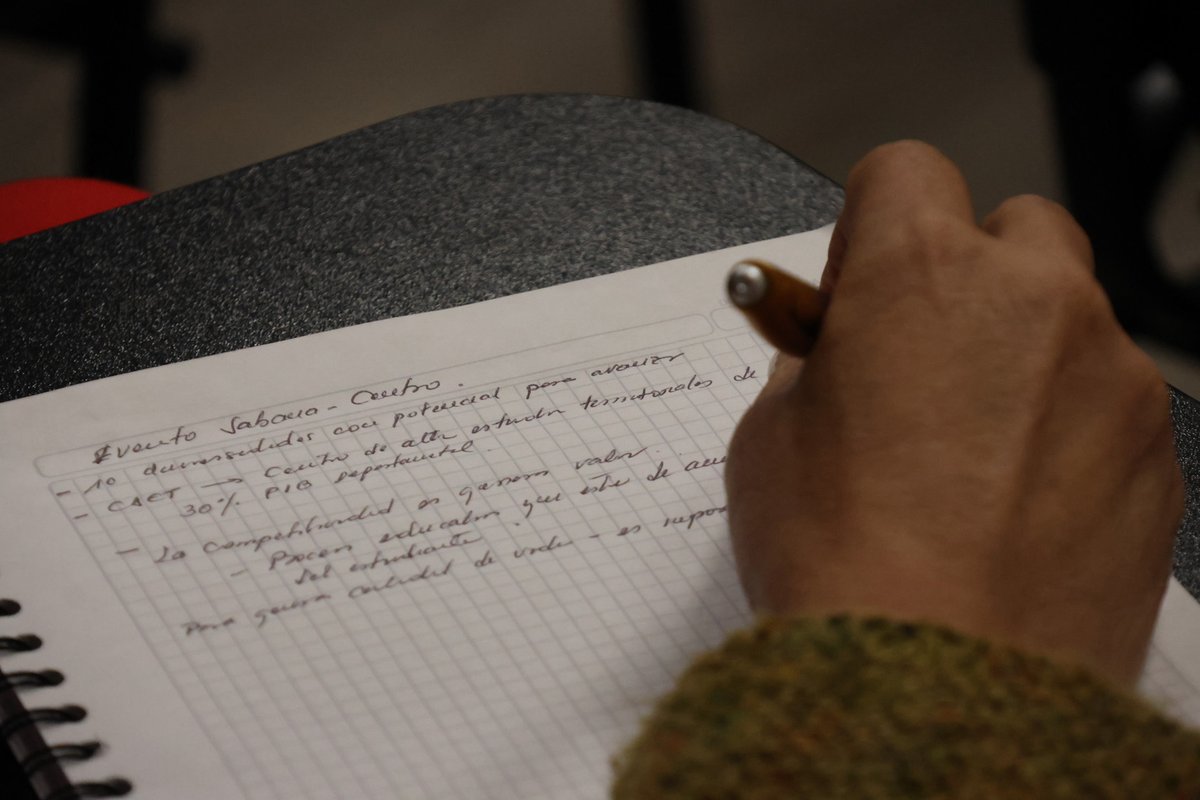 Evento Sabana - Centro.
- 10 universidades con potencial para avanzar
- CAET → Centro de altos estudios territoriales de
30% PIB departamental.
- La competitividad es generar valor.
- Proceso educativo que este de
del estudiante.
Para generar calidad de vida - es